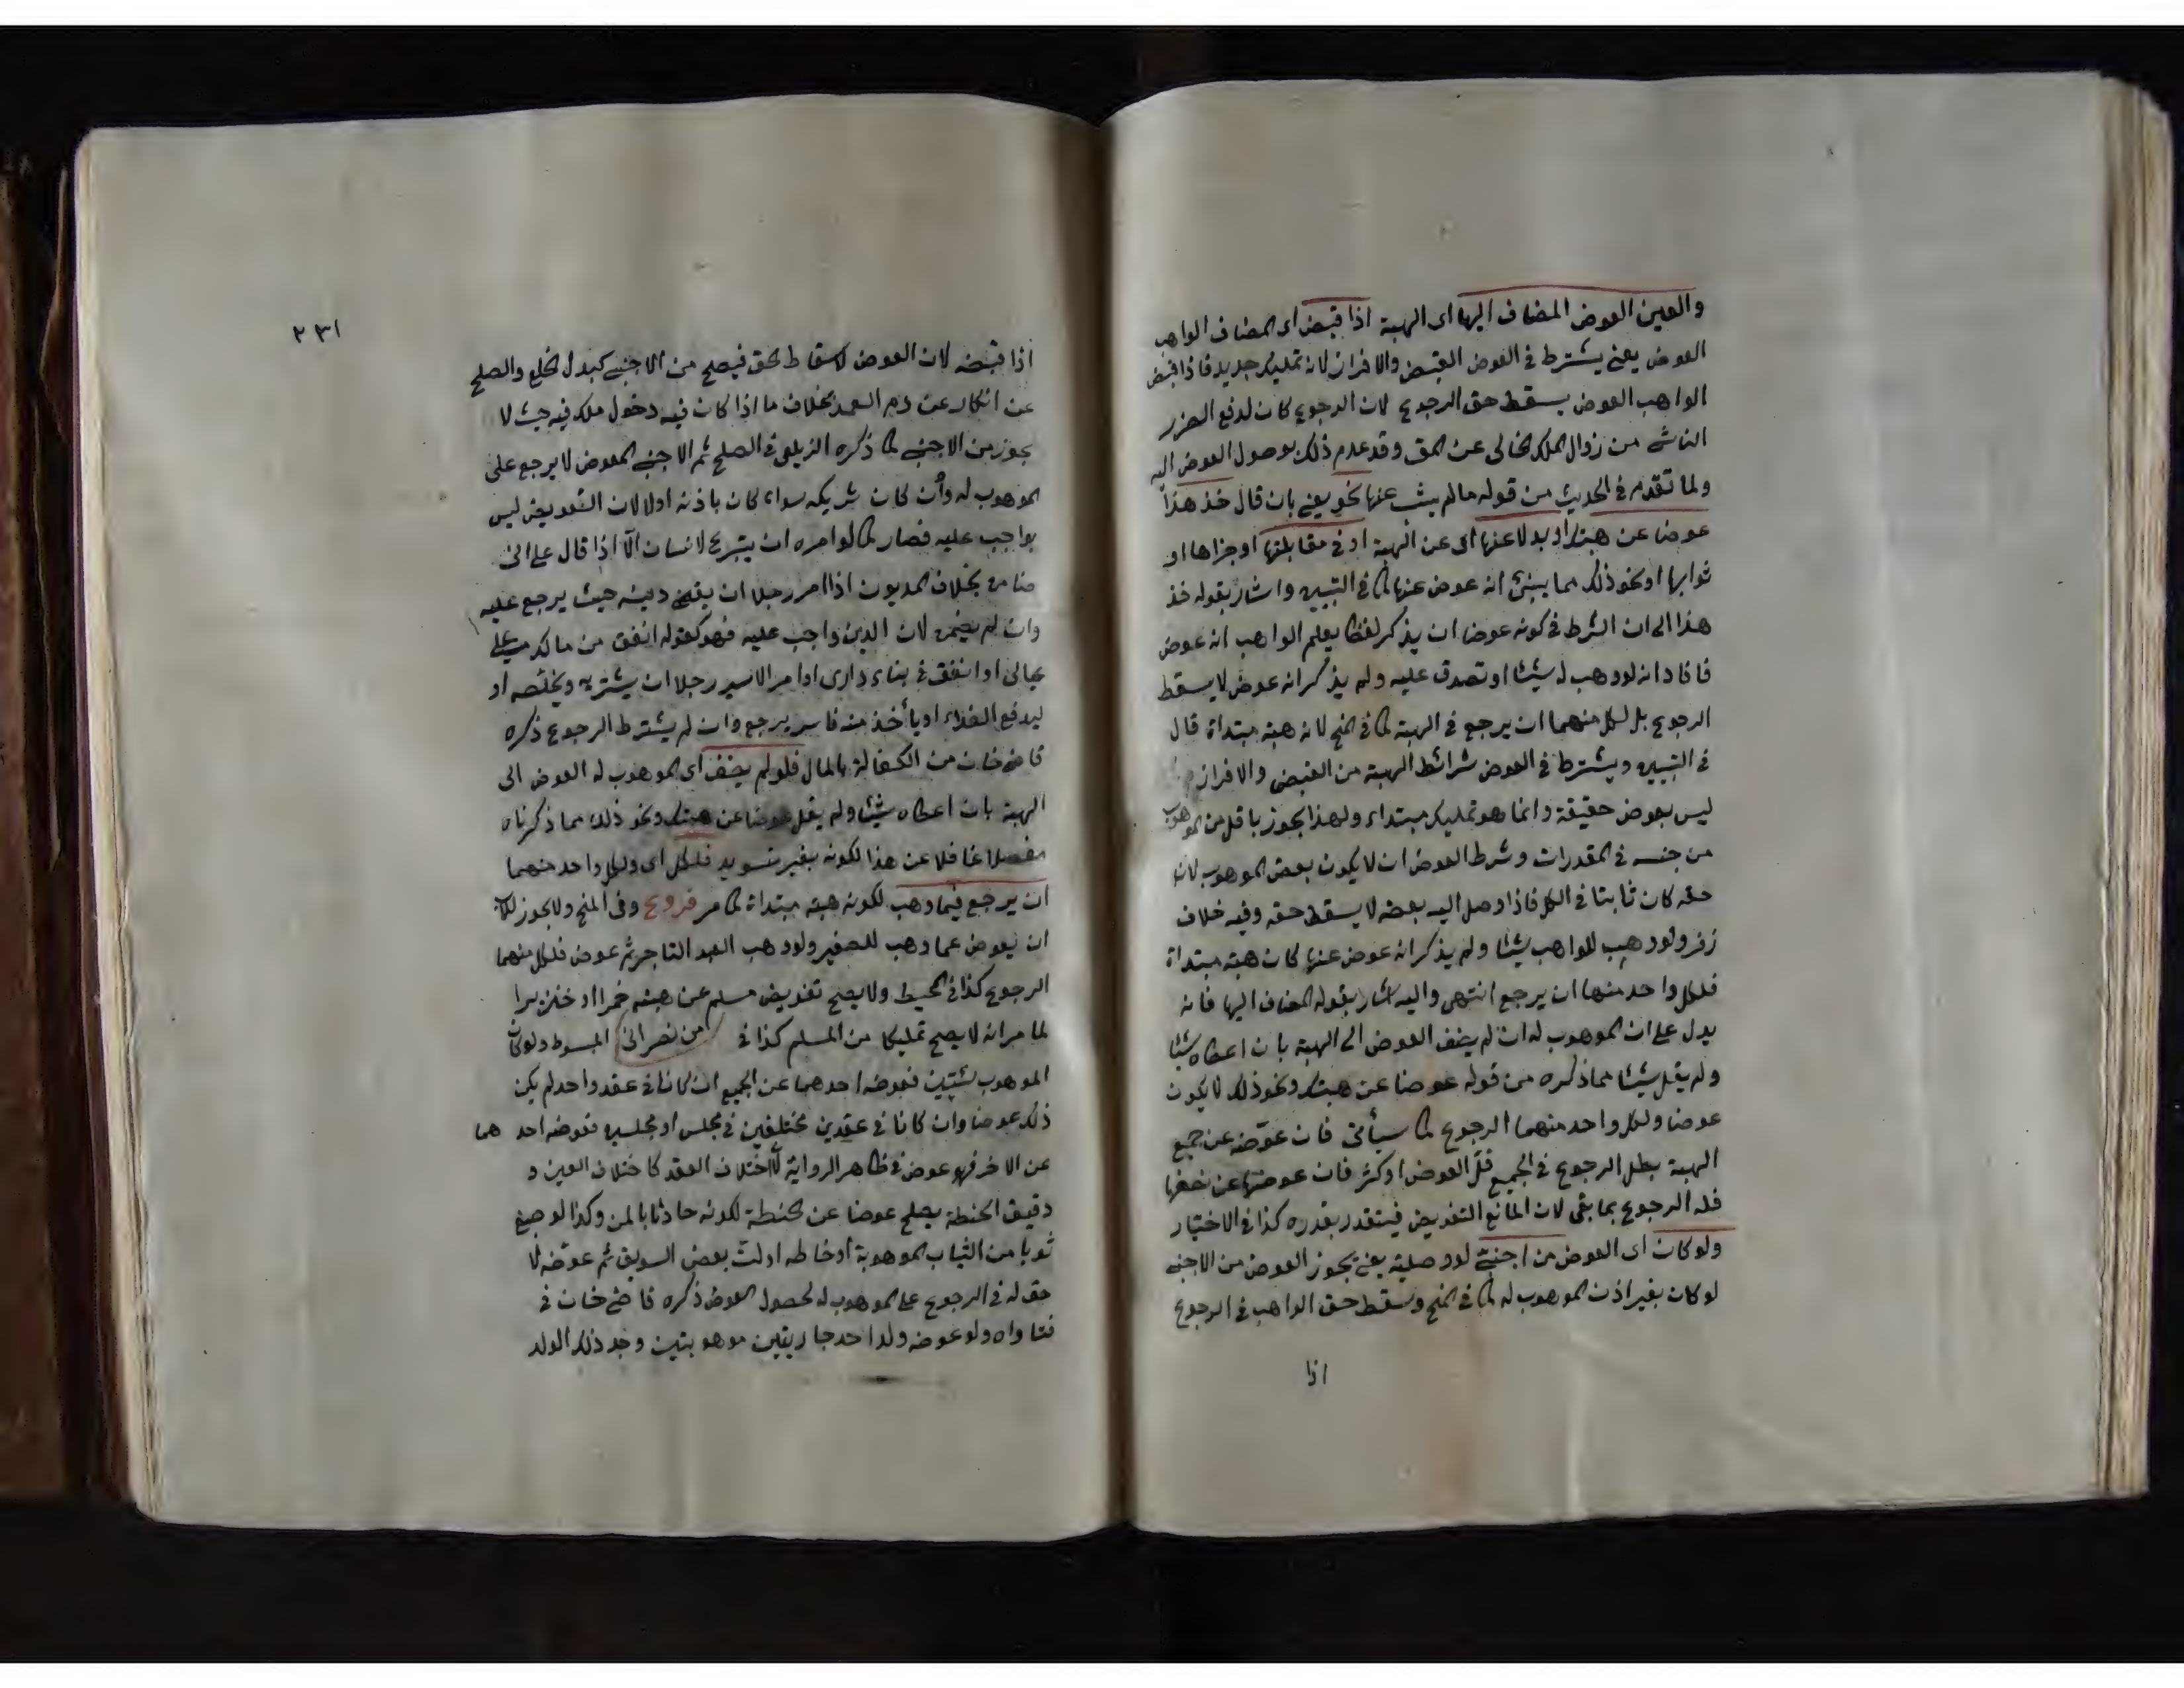 والعين العوض المضاف اليها اى الهبة اذا قبض اى المضاف الواهب
العوض يعنى يشترط فى العوض القبض والافراز لانه تمليك جديد فاذا قبض
الواهب العوض يسقط حق الرجوع لان الرجوع كان لدفع الضرر
الناشى من زوال الملك الخالى عن الحق وقد عدم ذلك بوصول العوض اليه
ولما تقدم فى الحديث من قوله ما لم يثب عنها نحو يعنى بان قال خذ هذا
عوضا عن هبتك او بدلا عنها اى عن الهبة او فى مقابلتها او جزاها او
ثوابها او نحو ذلك مما ينبئ انه عوض عنها كما فى التبيين واشار بقوله خذ
هذا الى ان الشرط فى كونه عوضا ان يذكر لفظا يعلم الواهب انه عوض
فافاد انه لو وهب له شيئا او تصدق عليه ولم يذكر انه عوض لا يسقط
الرجوع بل لكل منهما ان يرجع فى الهبة كما فى المنح لانه هبة مبتداة قال
فى التبيين ويشترط فى العوض شرائط الهبة من القبض والافراز
ليس بعوض حقيقة وانما هو تمليك مبتداء ولهذا يجوز باقل من الموهوب
من جنسه فى المقدرات وشرط العوض ان لا يكون بعض الموهوب لان
حقه كان ثابتا فى الكل فاذا وصل اليه بعضه لا يسقط حقه وفيه خلاف
زفر ولو وهب للواهب شيئا ولم يذكر انه عوض عنها كان هبة مبتداة
فلكل واحد منهما ان يرجع انتهى واليه اشار بقوله المضاف اليها فانه
يدل على ان الموهوب له ان لم يضف العوض الى الهبة بان اعطاه شيئا
ولم يقل شيئا مما ذكره من قوله عوضا عن هبتك ونحو ذلك لا يكون
عوضا ولكل واحد منهما الرجوع كما سيأتى فان عوّضه عن جميع
الهبة بطل الرجوع فى الجميع قلّ العوض او كثر فان عوضها عن نصفها
فله الرجوع بما بقى لان المانع التعويض فيتقدر بقدره كذا فى الاختيار
ولو كان اى العوض من اجنبىّ لو وصلية يعنى يجوز العوض من الاجنبى
لو كان بغير اذن الموهوب له كما فى المنح وسقط حق الواهب فى الرجوع
اذا
٢٣١
اذا قبضه لان العوض لاسقاط الحق فيصلح من الاجنبى كبدل الخلع والصلح
عن انكار عن دم العمد بخلاف ما اذا كان فيه دخول ملك فيه حيث لا
يجوز من الاجنبى كما ذكره الزيلعى فى الصلح ثم الاجنبى المعوض لا يرجع على
الموهوب له وأن كان شريكه سواء كان باذنه اولا لان التعويض ليس
بواجب عليه فصار كما لو امره ان يتبرع لانسان الّا اذا قال على انى
ضامن بخلاف المديون اذا امر رجلا ان يقضى دينه حيث يرجع عليه
وان لم يضمن لان الدين واجب عليه فهو كقوله انفق من مالك على
عيالى او انفق فى بناء دارى او امر الاسير رجلا ان يشتريه ويخلّصه او
ليدفع الفداء او يأخذ منه فاسر يرجع وان لم يشترط الرجوع ذكره
قاضى خان من الكفالة بالمال فلو لم يضف اى الموهوب له العوض الى
الهبة بان اعطاه شيئا ولم يقل عوضا عن هبتك ونحو ذلك مما ذكرناه
مفصلا غافلا عن هذا لكونه بغير تسويد فلكل اى ولكل واحد منهما
ان يرجع فيما وهب لكونه هبة مبتداة كما مر فروع وفى المنح ولا يجوز للاب
ان يعوض عما وهب للصغير ولو وهب العبد التاجر ثم عوض فلكل منهما
الرجوع كذا فى المحيط ولا يصح تعويض مسلم عن هبته خمرا او خنزيرا
لما مر انه لا يصح تمليكا من المسلم كذا فى من نصرانى المبسوط ولو كان
الموهوب شيئين فعوضه احدهما عن الجميع ان كانا فى عقد واحد لم يكن
ذلك عوضا وان كانا فى عقدين مختلفين فى مجلس او مجلسين فعوضه احد هما
عن الاخر فهو عوض فى ظاهر الرواية لأن اختلاف العقد كاختلاف العين و
دقيق الحنطة يصلح عوضا عن الحنطة لكونه حادثا بالطحن وكذا لو صبغ
ثوبا من الثياب الموهوبة او خاطه او لتّ بعض السويق ثم عوّضه لا
حق له فى الرجوع على الموهوب له لحصول العوض ذكره قاضى خان فى
فتاواه ولو عوضه ولد احد جاريتين موهوبتين وجد ذلك الولد